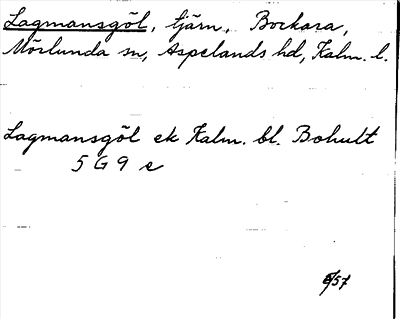 Lagmansgöl, tjärn, Bockara,
Mörlunda sn, Aspelands hd, Kalm. l.
Lagmansgöl ek Kalm. bl. Bohult
5 G 9 e
/57